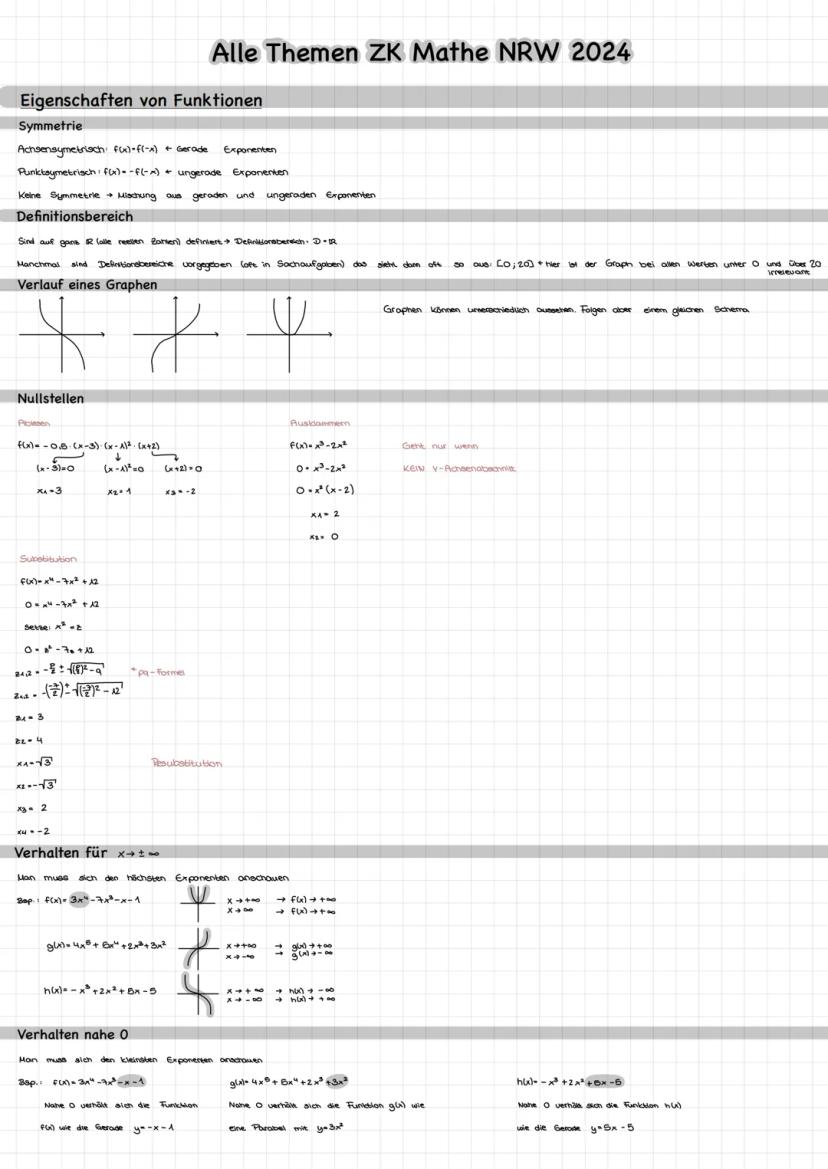 Alle Themen ZK Mathe NRW 2024
Eigenschaften von Funktionen
Symmetrie
Achsensymetrisch: f(x)=f(-x) ← Gerade Exponenten
Punktsymetrisch: f(x)=-f(-x) ← ungerade Exponenten
Keine Symmetrie → Mischung aus geraden und ungeraden Exponenten
Definitionsbereich
Sind auf ganz ℝ (alle reellen Zahlen) definiert → Definitionsbereich: D=ℝ
Manchmal sind Definitionsbereiche vorgegeben (oft in Sachaufgaben) das sieht dann oft so aus: [0;20] ← hier ist der Graph bei allen Werten unter 0 und über 20
irrelevant
Verlauf eines Graphen
Graphen können unterschiedlich aussehen. Folgen aber einem gleichen Schema
Nullstellen
Ablesen
f(x)= -0,5·(x-3)·(x-1)²·(x+2)
(x-3)=0 (x-1)²=0 (x+2)=0
x1=3 x2=1 x3=-2
Ausklammern
f(x)=x³-2x² Geht nur wenn
0=x³-2x² KEIN Y-Achsenabschnitt
0=x²(x-2)
x1= 2
x2= 0
Substitution
f(x)=x⁴-7x²+12
0=x⁴-7x²+12
Setze: x²=z
0=z²-7z+12
z1,2 = -p/2 ± √((p/2)²-q) ← pq-Formel
z1,2 = -(-7/2) ± √((-7/2)²-12)
z1= 3
z2= 4
x1=√3 Resubstitution
x2=-√3
x3= 2
x4=-2
Verhalten für x→±∞
Man muss sich den höchsten Exponenten anschauen
Bsp.: f(x)=3x⁴-7x³-x-1 x→+∞ → f(x)→+∞
x→∞ → f(x)→+∞
g(x)=4x⁵+5x⁴+2x³+3x² x→+∞ → g(x)→+∞
x→-∞ → g(x)→-∞
h(x)=-x³+2x²+5x-5 x→+∞ → h(x)→-∞
x→-∞ → h(x)→+∞
Verhalten nahe 0
Man muss sich den kleinsten Exponenten anschauen
Bsp.: f(x)=3x⁴-7x³-x-1 g(x)=4x⁵+5x⁴+2x³+3x² h(x)=-x³+2x²+5x-5
Nahe 0 verhält sich die Funktion Nahe 0 verhält sich die Funktion g(x) wie Nahe 0 verhält sich die Funktion h(x)
f(x) wie die Gerade y=-x-1 eine Parabel mit y=3x² wie die Gerade y=5x-5